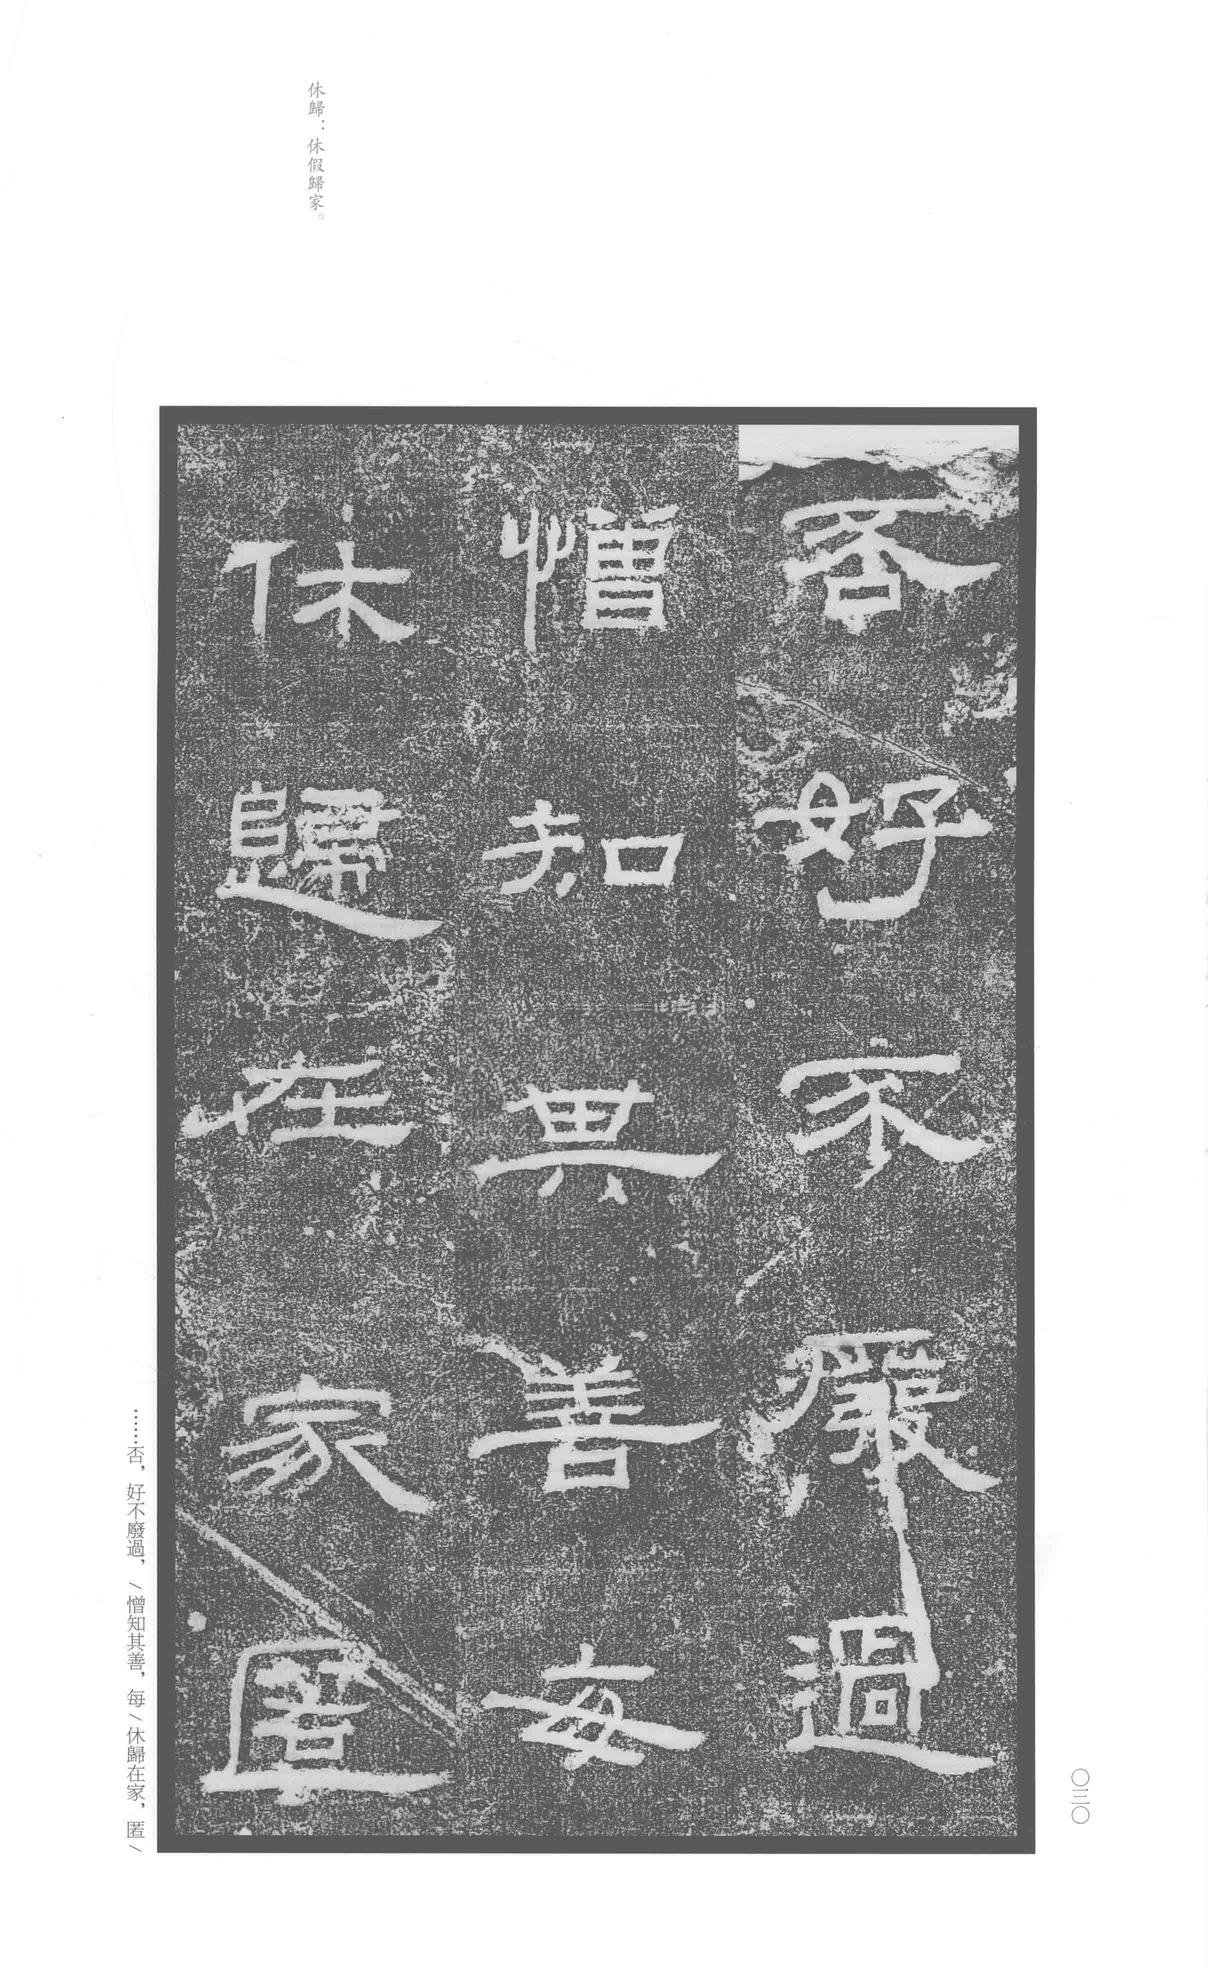 休歸：休假歸家。
否好不廢過
憎知其善每
休歸在家匿
……否，好不廢過，/憎知其善，每/休歸在家，匿/
〇三〇